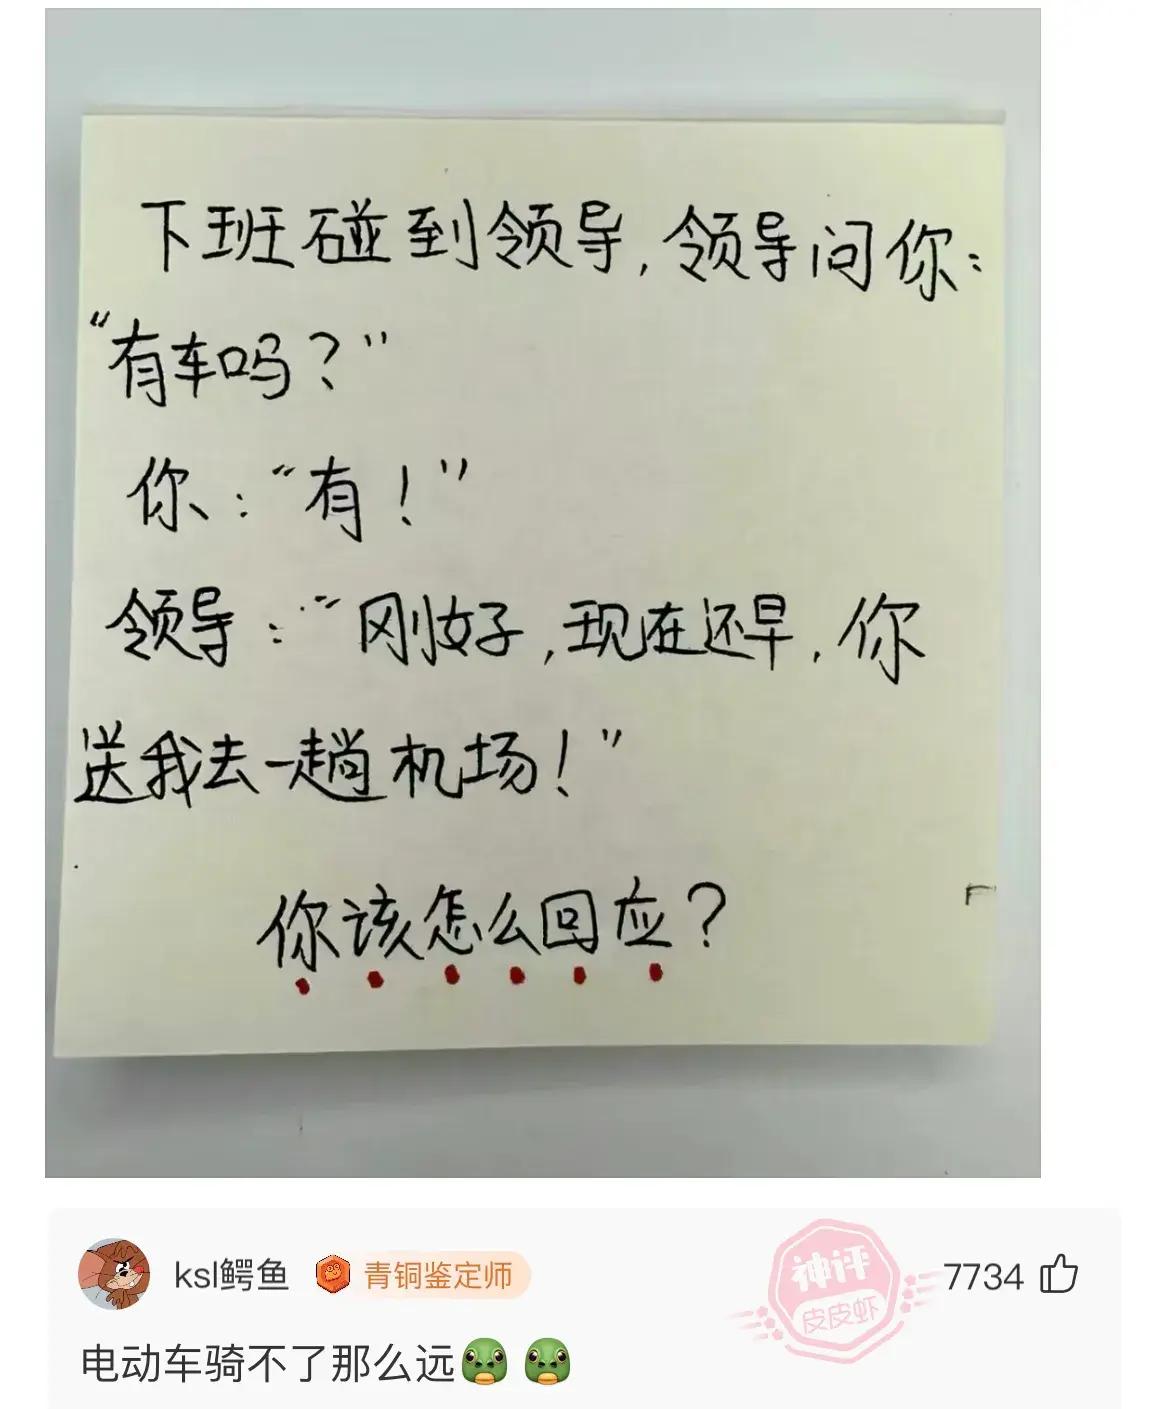 下班碰到领导,领导问你:
“有车吗？”
你:“有！”
领导:“刚好,现在还早,你
送我去一趟机场！”
你该怎么回应？
ksl鳄鱼 青铜鉴定师 神评 皮皮虾 7734
电动车骑不了那么远